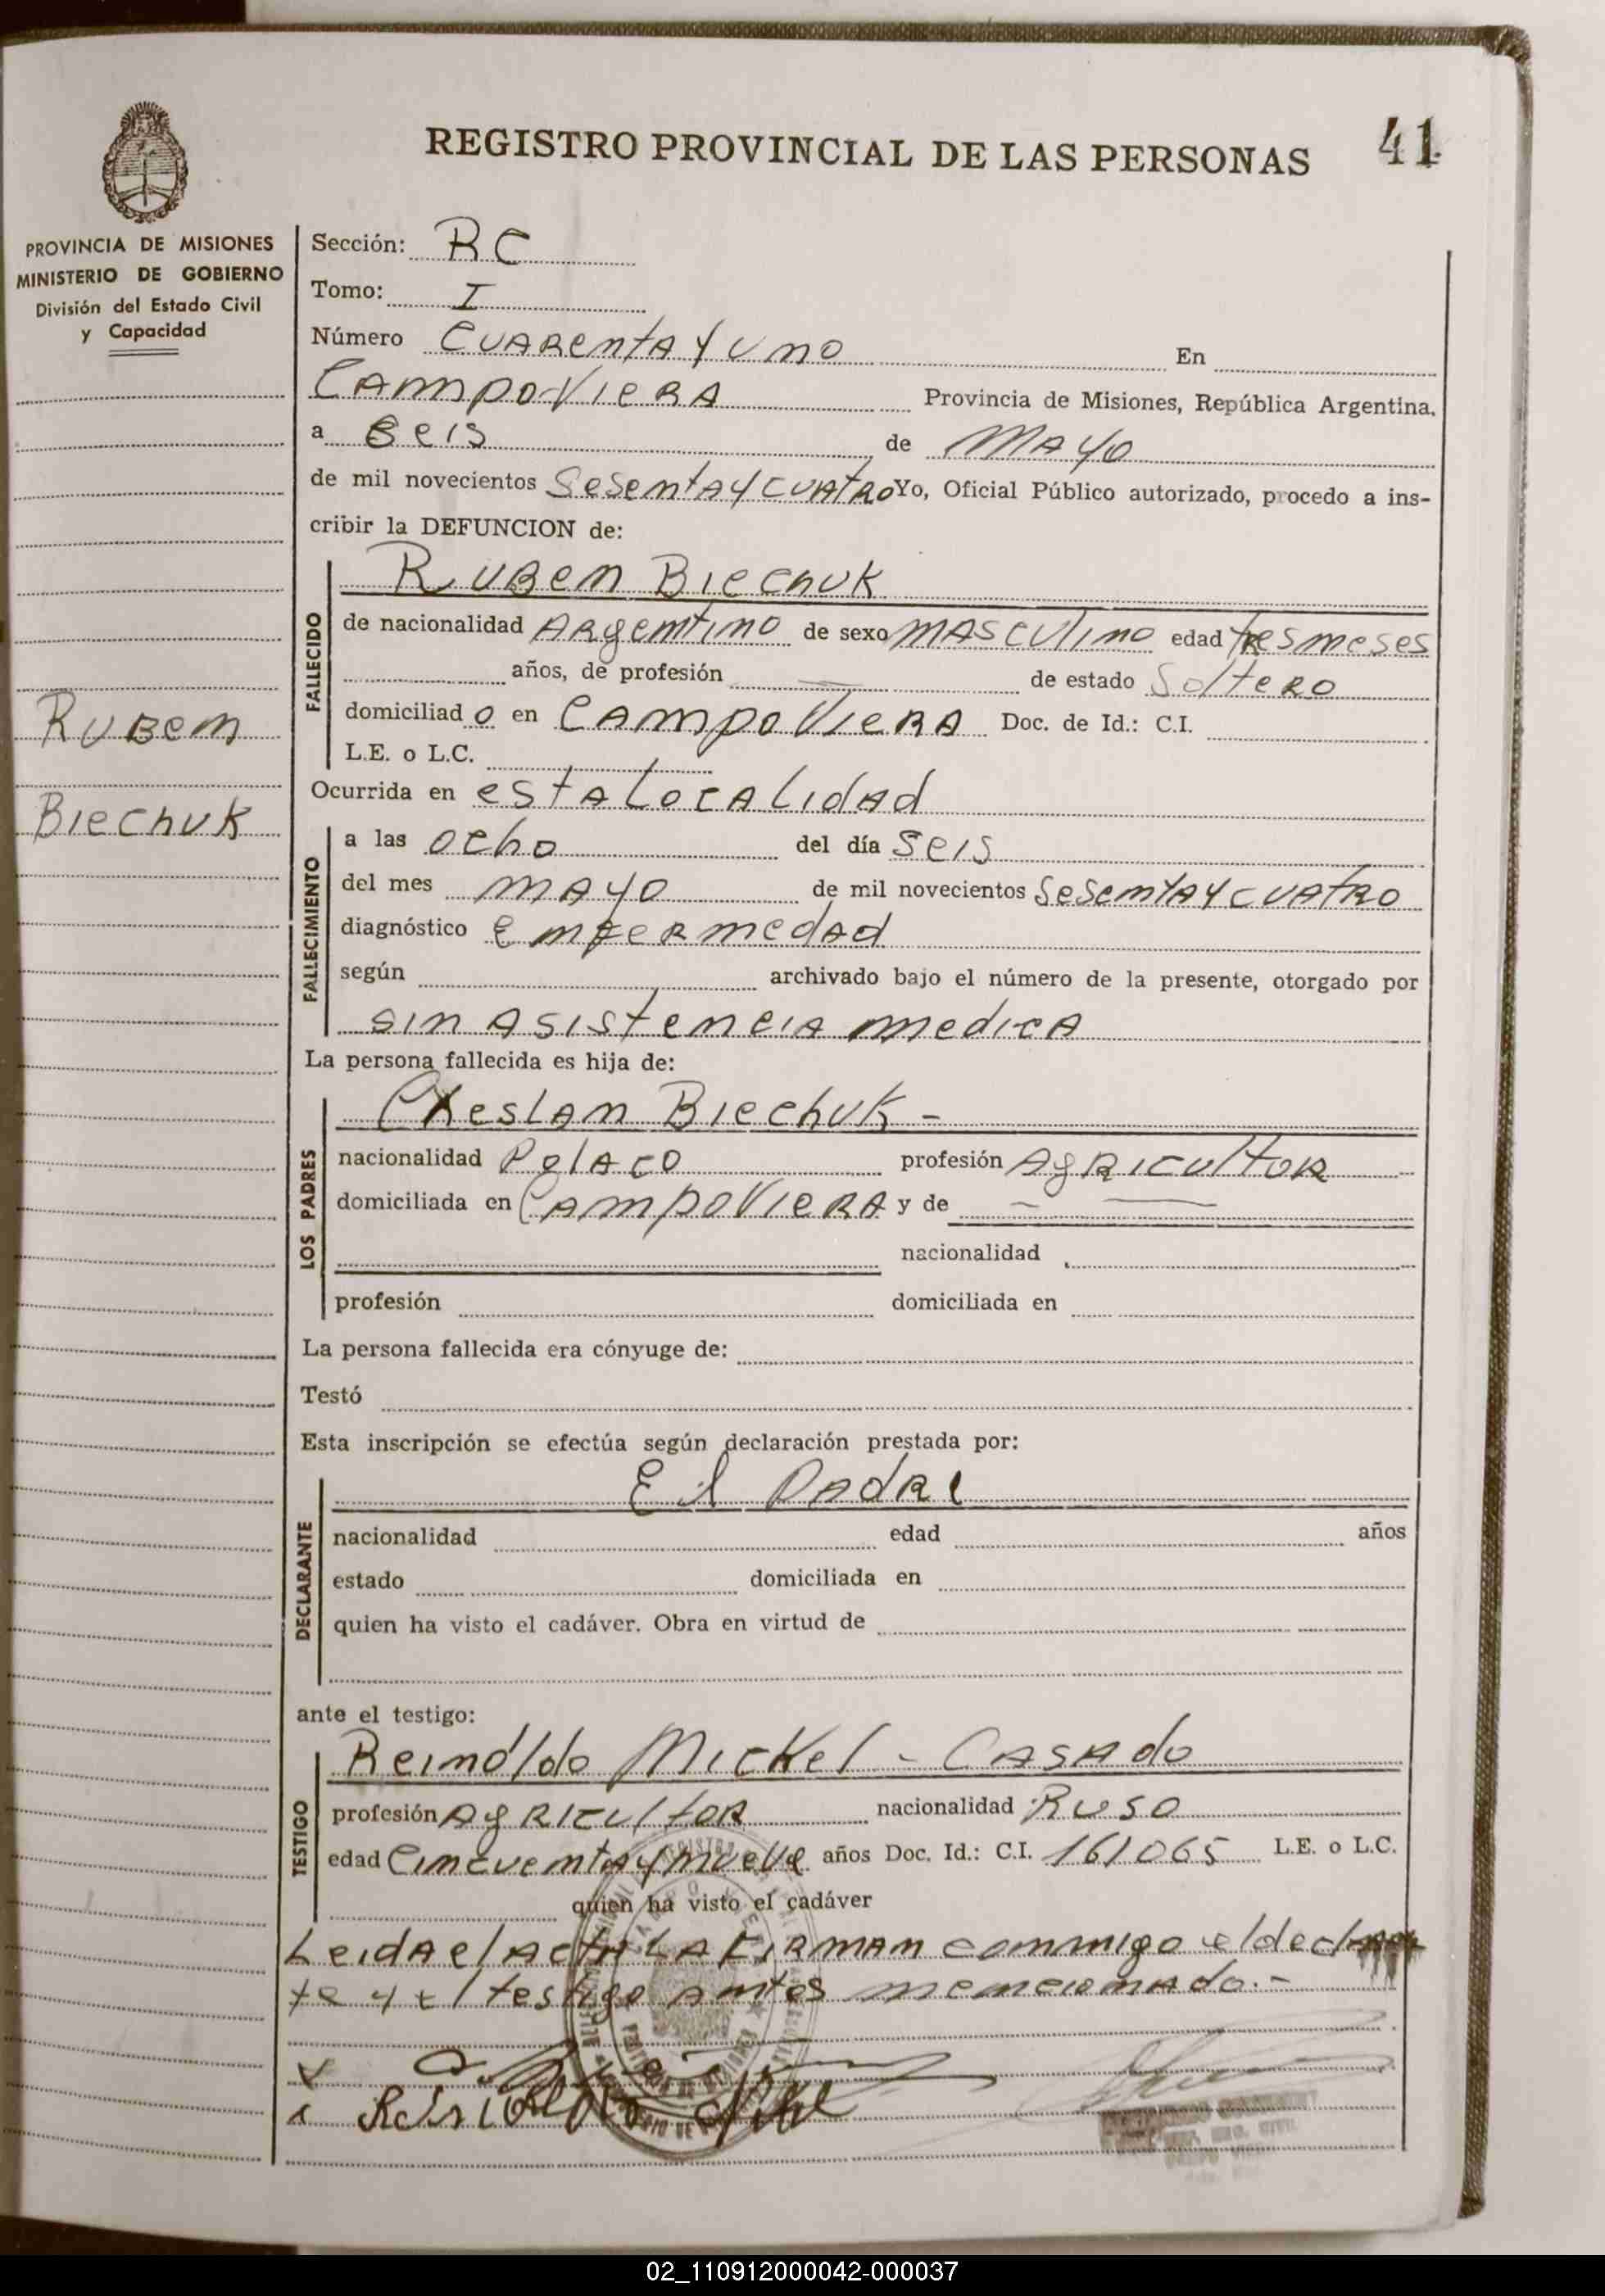 REGISTRO PROVINCIAL DE LAS PERSONAS 41
PROVINCIA DE MISIONES
MINISTERIO DE GOBIERNO
División del Estado Civil
y Capacidad
Rubem
Biechuk
Sección: RC
Tomo: I
Número Cuarenta y uno En
Campo Viera Provincia de Misiones, República Argentina.
a Seis de Mayo
de mil novecientos Sesenta y cuatro Yo, Oficial Público autorizado, procedo a ins-
cribir la DEFUNCION de:
FALLECIDO
Ruben Biechuk
de nacionalidad Argentino de sexo masculino edad tres meses
años, de profesión — de estado Soltero
domiciliad o en Campo Viera Doc. de Id.: C.I.
L.E. o L.C.
Ocurrida en esta Localidad
FALLECIMIENTO
a las ocho del día seis
del mes mayo de mil novecientos Sesenta y cuatro
diagnóstico Enfermedad
según archivado bajo el número de la presente, otorgado por
sin asistencia medica
La persona fallecida es hija de:
LOS PADRES
Cheslan Biechuk -
nacionalidad Polaco profesión Agricultor
domiciliada en Campo Viera y de — —
nacionalidad
profesión domiciliada en
La persona fallecida era cónyuge de:
Testó
Esta inscripción se efectúa según declaración prestada por:
DECLARANTE
El Padre
nacionalidad edad años
estado domiciliada en
quien ha visto el cadáver. Obra en virtud de
ante el testigo:
TESTIGO
Reinoldo Mickel - Casado
profesión Agricultor nacionalidad Ruso
edad Cincuenta y nueve años Doc. Id.: C.I. 161065 L.E. o L.C.
quien ha visto el cadáver
Leida el acta la firman conmigo el declaran
te y el testigo antes mencionado.-
x
x
02_110912000042-000037